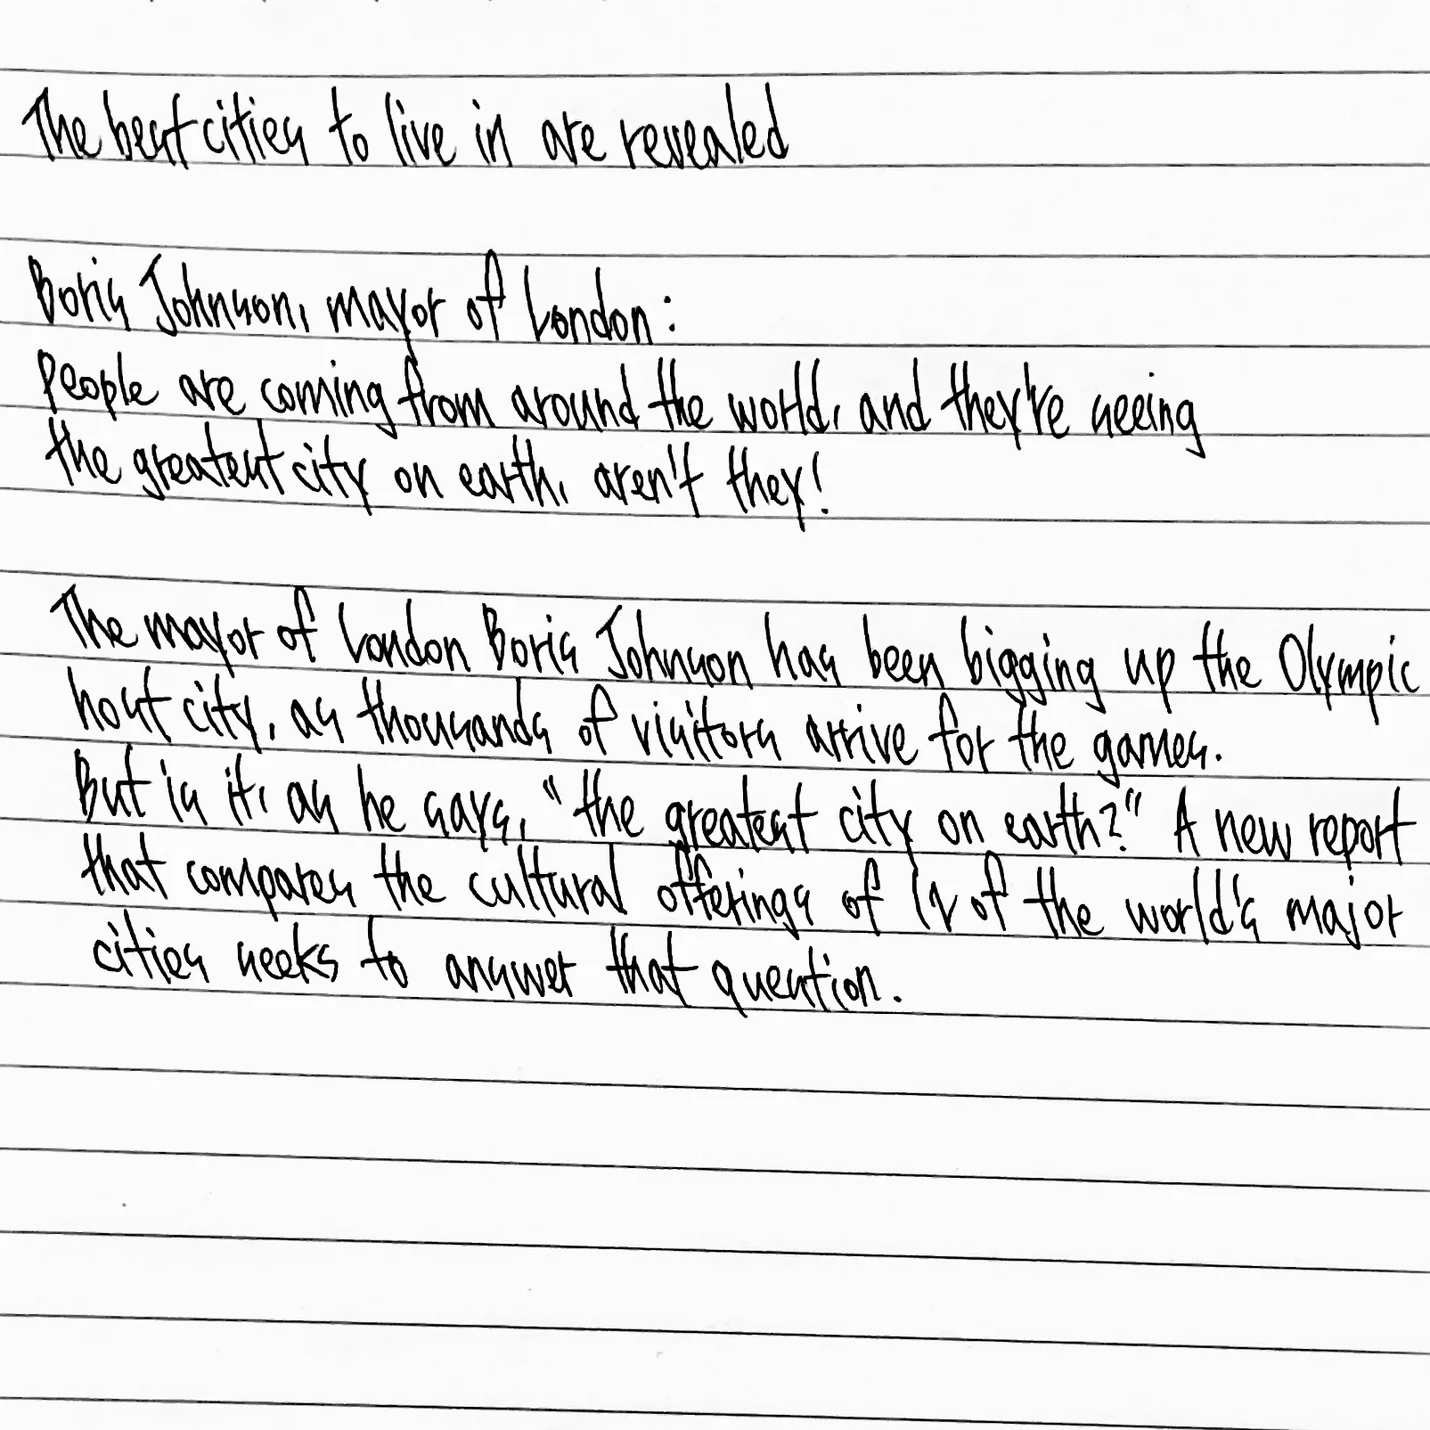 The best cities to live in are revealed
Boris Johnson, mayor of London:
People are coming from around the world, and they're seeing
the greatest city on earth, aren't they!
The mayor of London Boris Johnson has been bigging up the Olympic
host city, as thousands of visitors arrive for the games.
But is it, as he says, "the greatest city on earth?" A new report
that compares the cultural offerings of 12 of the world's major
cities seeks to answer that question.